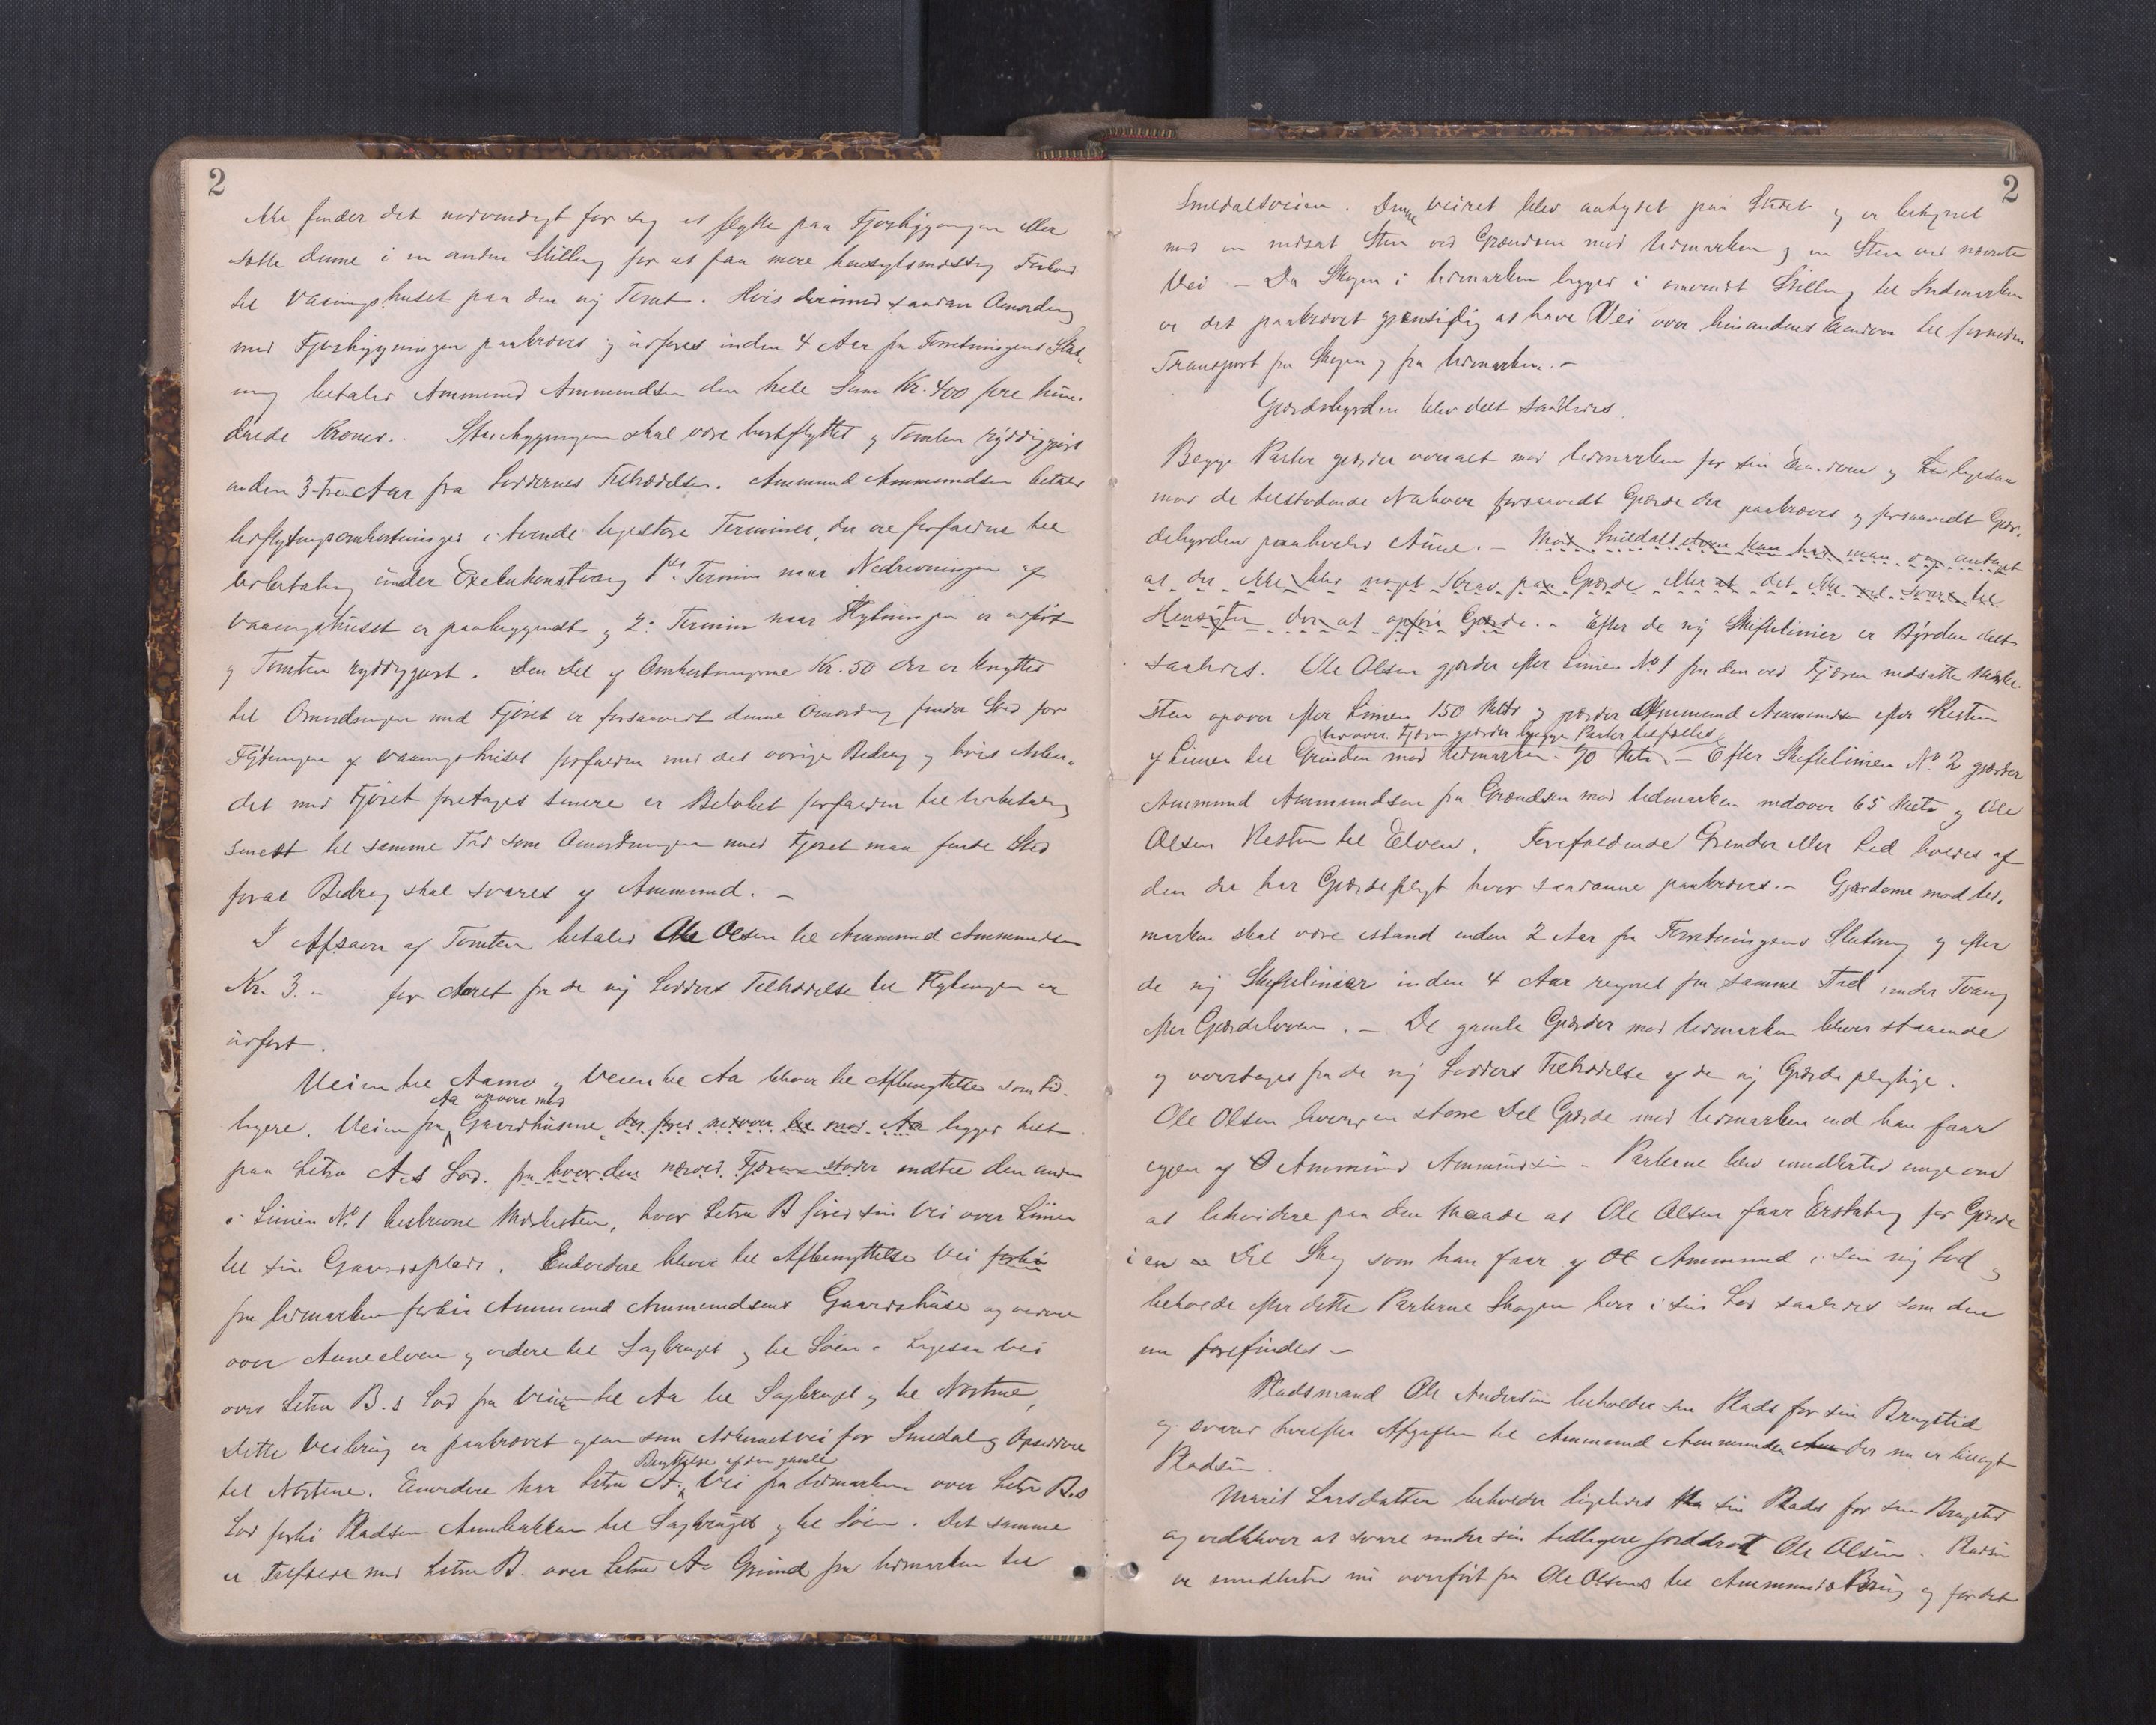 2
ikke finder det nødvendigt for sig at flytte paa Fjøsbygningen eller
sætte denne i en anden Stilling for at faa mere hensigtsmæssig Forhold
til Vaaningshuset paa den ny Tomt. Hvis derimod saadan Omordning
med Fjøsbygningen paakræves og udføres inden 4 Aar fra Forretningens Slut-
ning betaler Ammund Ammundsen den hele Sum Kr. 400 fire hun-
drede Kroner. Stuebygningen skal være bortflyttet og Tomten ryddiggjort
inden 3-tre Aar fra Loddernes Tiltrædelse. Ammund Ammundsen betaler
Udflytningsomkostninger i tvende ligestore Terminer, der ere forfaldne til
Udbetaling under Exekutionstvang 1ste Termin naar Nedrivningen af
Vaaningshuset er paabegyndt og 2: Termin naar Flytningen er udført
og Tomten ryddiggjort. Den Del af Omkostningerne Kr. 50 der er knyttet
til Omordningen med Fjøset er forsaavidt denne Omordning finder Sted før
Flytningen af Vaaningshuset forfalden med det øvrige Bidrag og hvis Arbei-
det med Fjøset foretages senere er Beløbet forfalden til Udbetaling
senest til samme Tid som Omordningen med Fjøset maa finde Sted
forat Bidrag skal svares af Ammund. -
I Afsavn af Tomten betaler Ole Olsen til Ammund Ammundsen
Kr. 3. - for Aaret fra de ny Lodders Tiltrædelse til Flytningen er
udført.
Veien til Aamo og Veien til Aa bliver til Afbenyttelse som tid-
Aa opover med
ligere. Veien fra Gaardhusene der fører nedover til mod Aa ligger helt
paa Litra A.s Lod. fra hvor den nærved Fjæren støder indtil den anden
i Linien No. 1 beskrevne Mærkesten, hvor Litra B fører sin Vei over Linien
til sin Gaardsplads. Endvidere bliver til Afbenyttelse Vei forbi
fra Udmarken forbi Ammund Ammundsens Gaardshuse og videre
over Auneelven og videre til Sagbruget og til Søen. Ligesaa Vei
over Litra B.s Lod fra Veien til Aa til Sagbruget og til Nøstene,
Dette Veibrug er paakrævet ogsaa som Adkomstvei for Smedal og Opsiddere
Benyttelse af den gamle
til Nøstene. Endvidere har Litra A. Vei fra Udmarken over Litra B.s
Lod forbi Pladsen Aunbakken til Sagbruget og til Søen. Det samme
er Tilfælde med Litra B. over Litra A. Grund fra Udmarken til
2
Smedalsveien. Denne Veiret blev antydet paa Stedet og er betegnet
med en nedsat Sten ved Grændsen mod Udmarken og en Sten ved nævnte
Vei - Da Skogen i Udmarken ligger i omvendt Stilling til Indmarken
er det paakrævet gjensidig at have Vei over hinandens Eiendom til fornøden
Transport fra Skogen og fra Udmarken. -
Gjærdebyrden blev delt saaledes.
Begge Parter gjærder overalt mod Udmarken for sin Eiendom og ligesaa
mod de tilstødende Naboer forsaavidt Gjærde der paakræves og forsaavidt Gjær-
debyrden paahviler Aune. - Mod Smedalselven har man og antaget
at der ikke blev noget Krav paa Gjærde eller at det ikke vil svare til
Hensigten der at opføre Gjærde. - Efter de ny Skiftelinier er Byrden delt
saaledes. Ole Olsen gjærder efter Linien No. 1 fra den ved Fjæren nedsatte Mærke-
sten opover efter Linien 150 Meter og gjærder Ammund Ammundsen efter Resten
Udover Fjæren gjærder begge Parter tilfælles
af Linien til Grinden mod Udmarken 90 Meter. - Efter Skiftelinien No. 2 gjærder
Ammund Ammundsen fra Grændsen mod Udmarken nedover 65 Meter og Ole
Olsen Resten til Elven. Forefaldende Grinder eller Led holdes af
den der har Gjærdepligt hvor saadanne paakræves. - Gjærderne mod Ud-
marken skal være istand inden 2 Aar fra Forretningens Slutning og efter
de ny Skiftelinier inden 4 Aar regnet fra samme Tid under Tvang
efter Gjærdeloven. - De gamle Gjærder mod Udmarken bliver staaende
og overtages fra de ny Lodders Tiltrædelse af de ny Gjærdepligtige.
Ole Olsen en større Del Gjærde mod Udmarken end han faar
igjen af Ammund Ammundsen. Parterne blev imidlertid enige om
at likvidere paa den Maade at Ole Olsen faar Erstatning for Gjærde
i en Del Skog som han faar af Ammund i sin ny Lod og
beholde efter dette Parterne Skogen hver i sin Lod saaledes som den
nu forefindes -
Pladsmand Ole Andersen beholder sin Plads for sin Brugstid
og svarer herefter Afgiften til Ammund Ammundsen der nu er tillagt
Pladsen.
Marit Larsdatter beholder ligeledes sin Plads for sin Brugstid
og vedbliver at svare under sin tidligere Jorddrot Ole Olsen. Pladsen
er imidlertid nu overført fra Ole Olsens til Ammunds Brug og for det